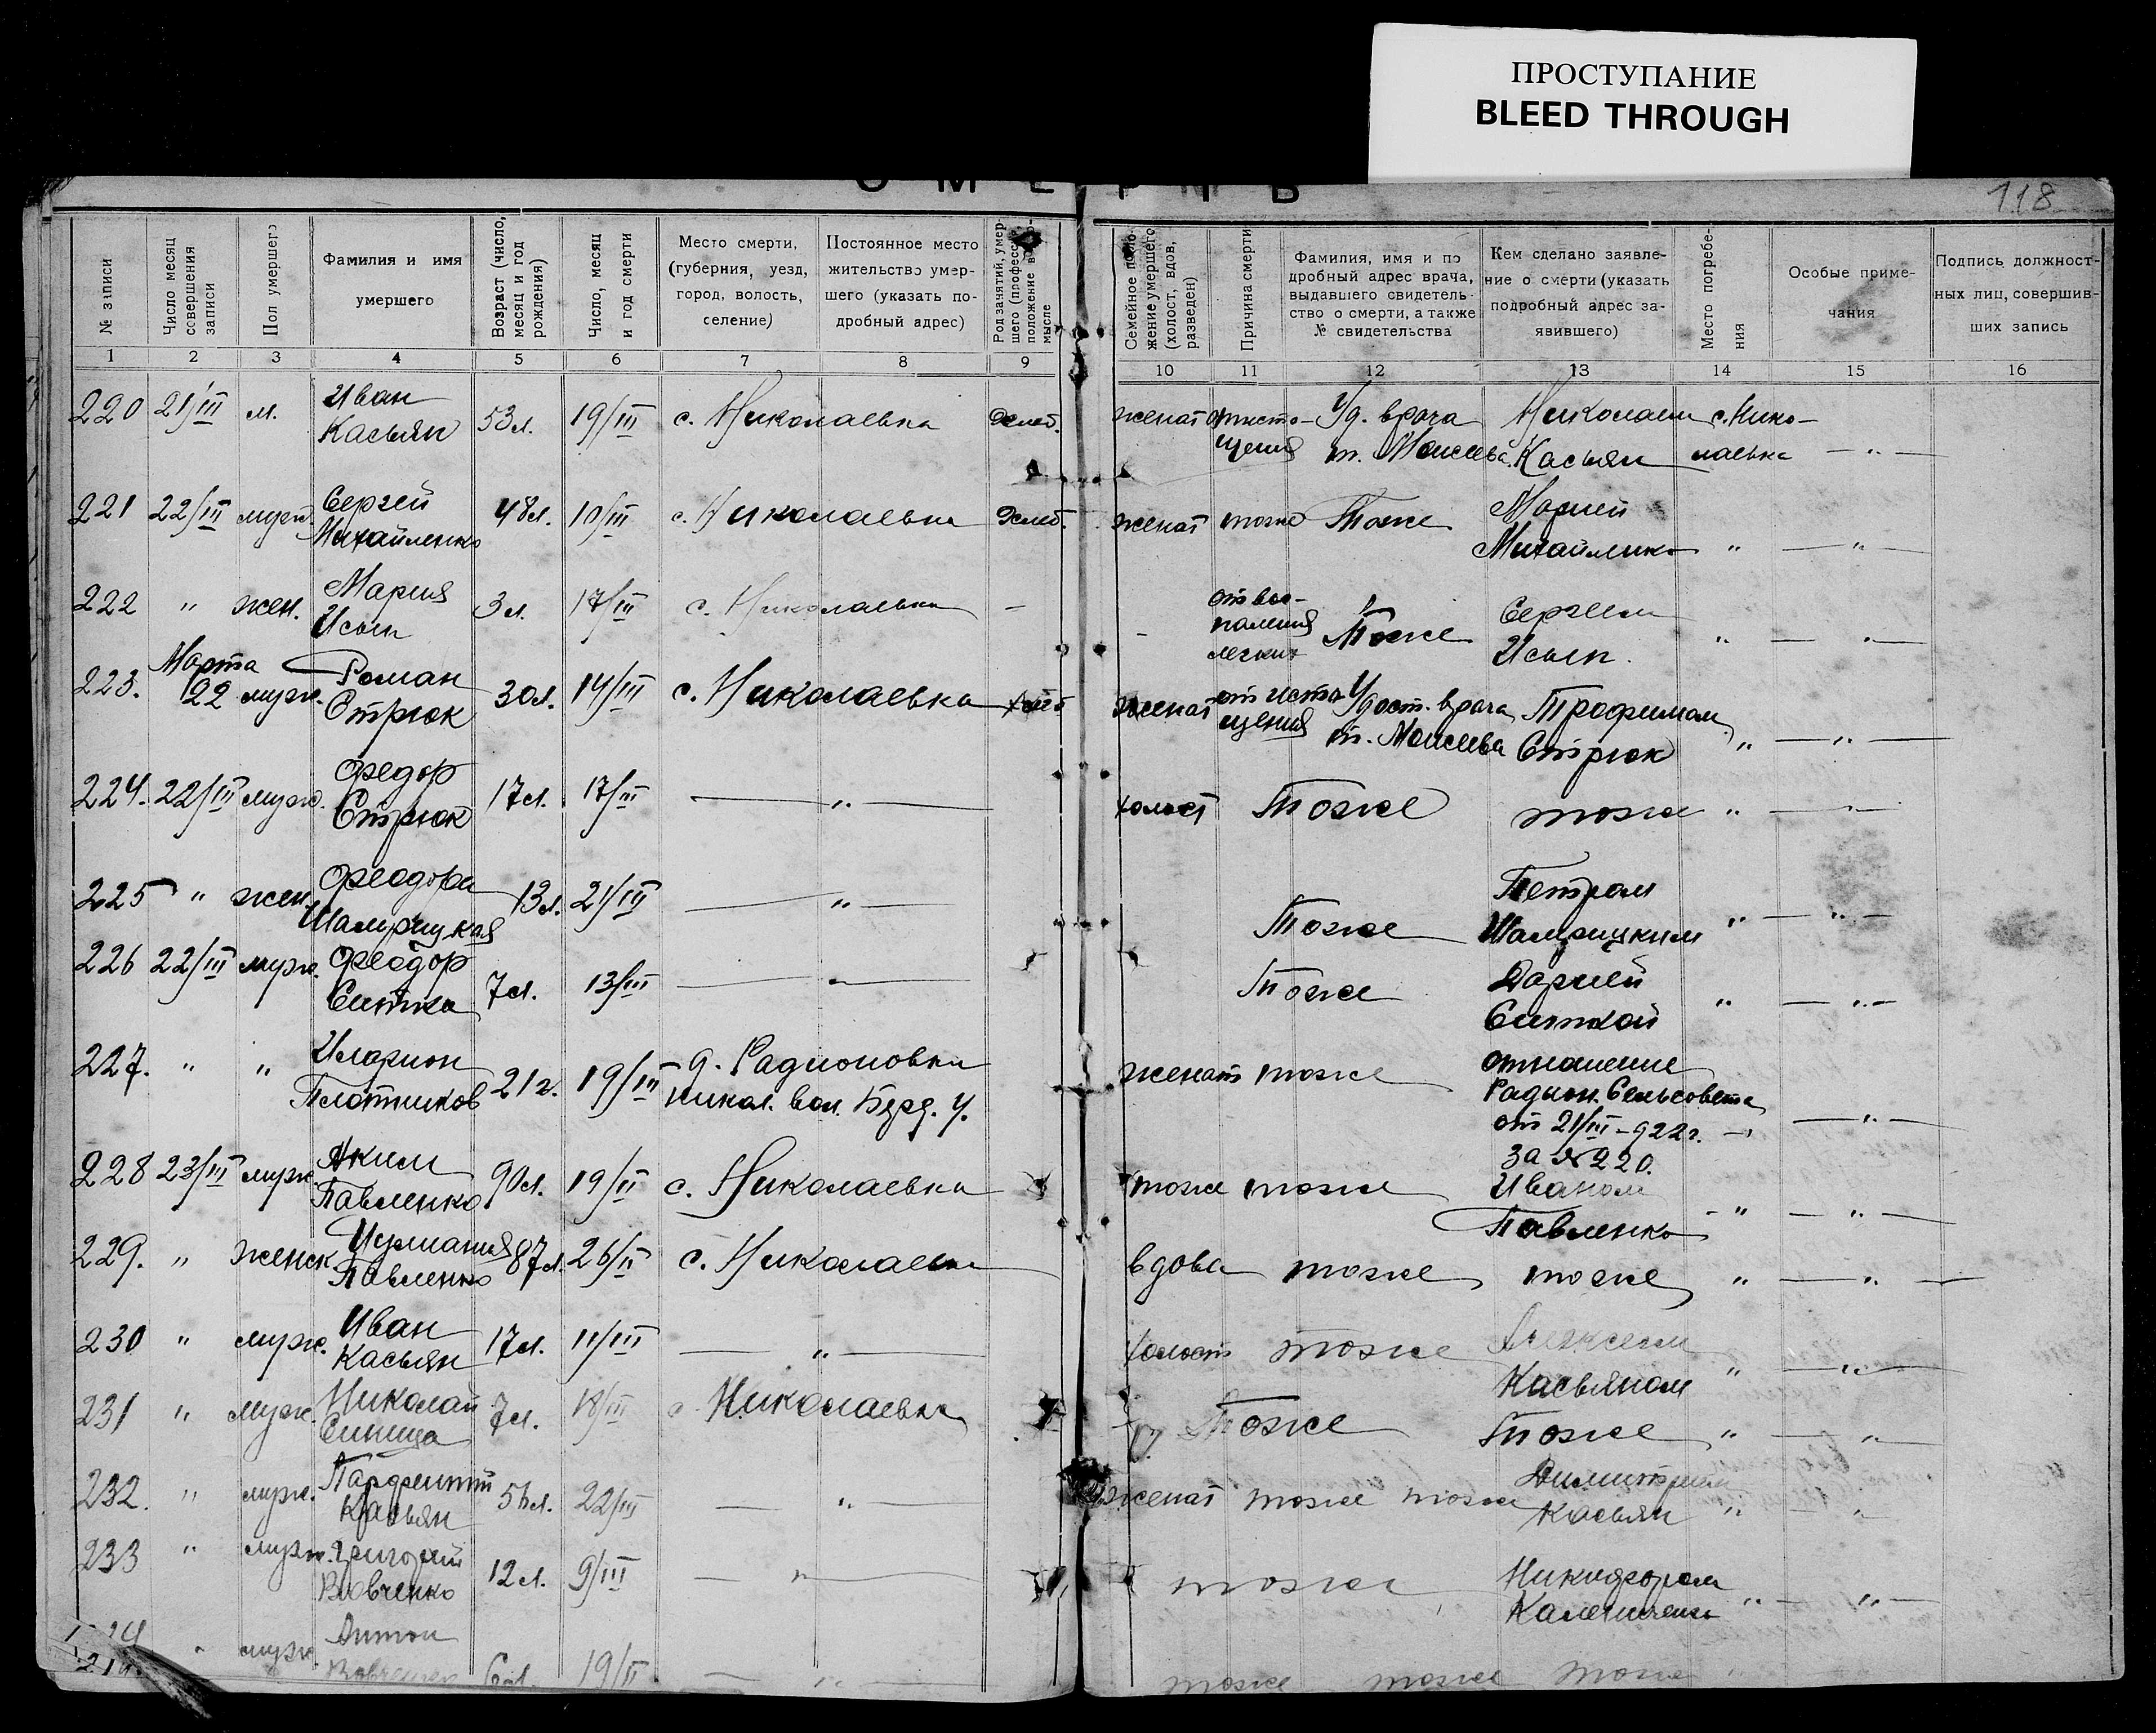 ПРОСТУПАНИЕ
BLEED THROUGH
118
№ записи
Число месяц совершения записи
Пол умершего
Фамилия и имя умершего
Возраст (число, месяц и год рождения)
Число, месяц и год смерти
Место смерти, (губерния, уезд, город, волость, селение)
Постоянное место жительство умершего (указать подробный адрес)
Семейное положение умершего (холост, вдов, разведен)
Причина смерти
Фамилия, имя и подробный адрес врача, выдавшего свидетельство о смерти, а также № свидетельства
Кем сделано заявление о смерти (указать подробный адрес заявившего)
Место погребения
Особые примечания
Подпись должностных лиц, совершивших запись
1 2 3 4 5 6 7 8 9 10 11 12 13 14 15 16
220 21/III м. Иван Касьян 53 л. 19/III с. Николаевка женат от истощения Уд. врача т. Моисеева Николаем Касьян с. Николаевка — " —
221 22/III муж. Сергей Михайленко 48 л. 10/III с. Николаевка женат тоже Тоже Марией " — " —
222 " жен. Мария 3 л. 17/III с. Николаевка — - от воспаления легких Тоже Сергеем " — " —
223. Марта 22 муж. Роман Стрюк 30 л. 14/III с. Николаевка женат от истощения Удост. врача т. Моисеева Трофимом Стрюк " — " —
224. 22/III муж. Федор Стрюк 17 л. 17/III — " — холост Тоже тоже " — " —
225 " жен. Феодора 13 л. 21/III — " — Тоже Петром " — " —
226 22/III муж. Феодор Ситка 7 л. 13/III — " — Тоже Дарией Ситкой " — " —
227. " " Иларион Плотников 21 г. 19/III д. Радионовка Никол. вол. Берд. у. женат тоже отношение Радион. Сельсовета от 21/III-922 г. за № 220. — " —
228 23/III муж. Аким Павленко 90 л. 19/II с. Николаевка тоже тоже Иваном Павленко " — " —
229. " женск. Павленко 87 л. 26/II с. Николаевка вдова тоже тоже " — " —
230 " муж. Иван Касьян 17 л. 11/III — " — холост тоже Алексеем Касьяном " — " —
231 " муж. Николай Синица 7 л. 18/III с. Николаевка Тоже Тоже " — " —
232. " муж. Парфентий Касьян 22/III — " — женат тоже тоже Димитрием Касьян " — " —
233 " муж. Григорий 12 л. 9/III — " — тоже Никифором " — " —
" муж. Антон 19/II — " — тоже тоже тоже "